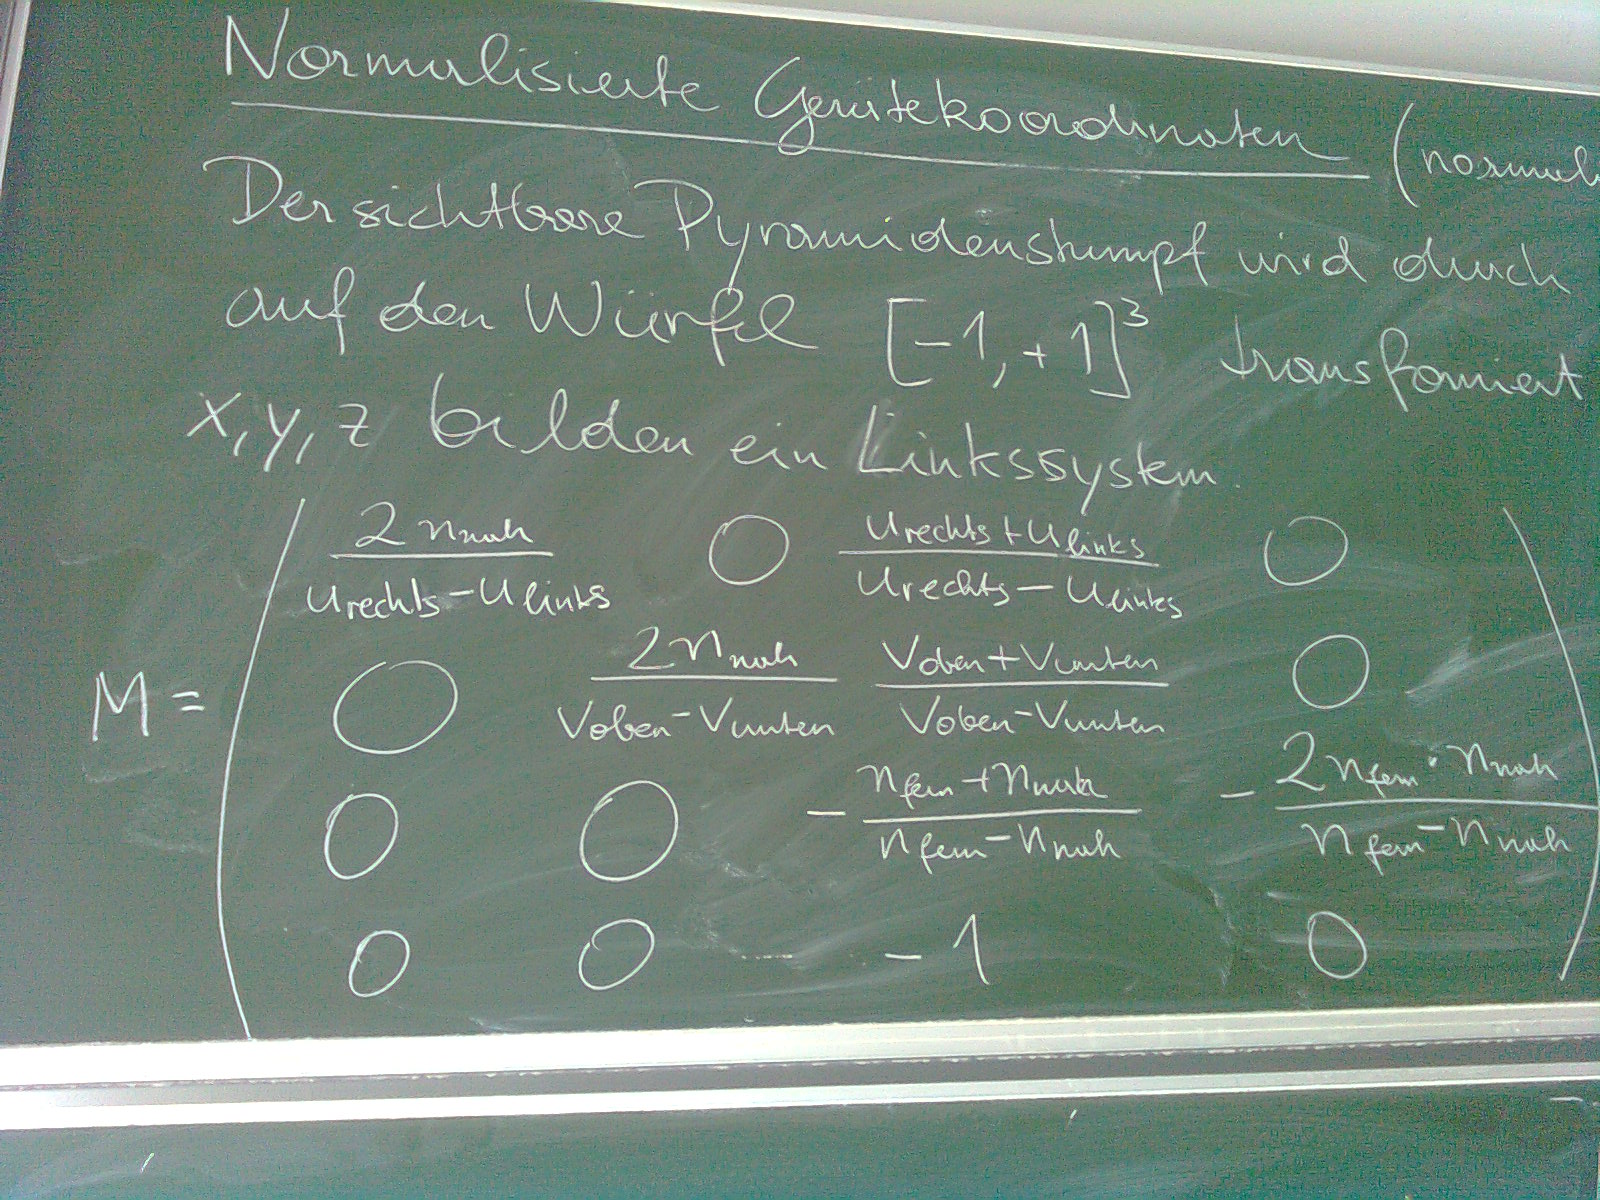 Normalisierte Gerätekoordinaten (normal
Der sichtbare Pyramidenstumpf wird durch
auf den Würfel [-1,+1]³ transformiert
x, y, z bilden ein Linkssystem.
2 n nah 0 u rechts + u links 0
u rechts - u links u rechts - u links
0 2 n nah v oben + v unten 0
M = v oben - v unten v oben - v unten
0 0 - n fern + n nah - 2 n fern · n nah
n fern - n nah n fern - n nah
0 0 -1 0